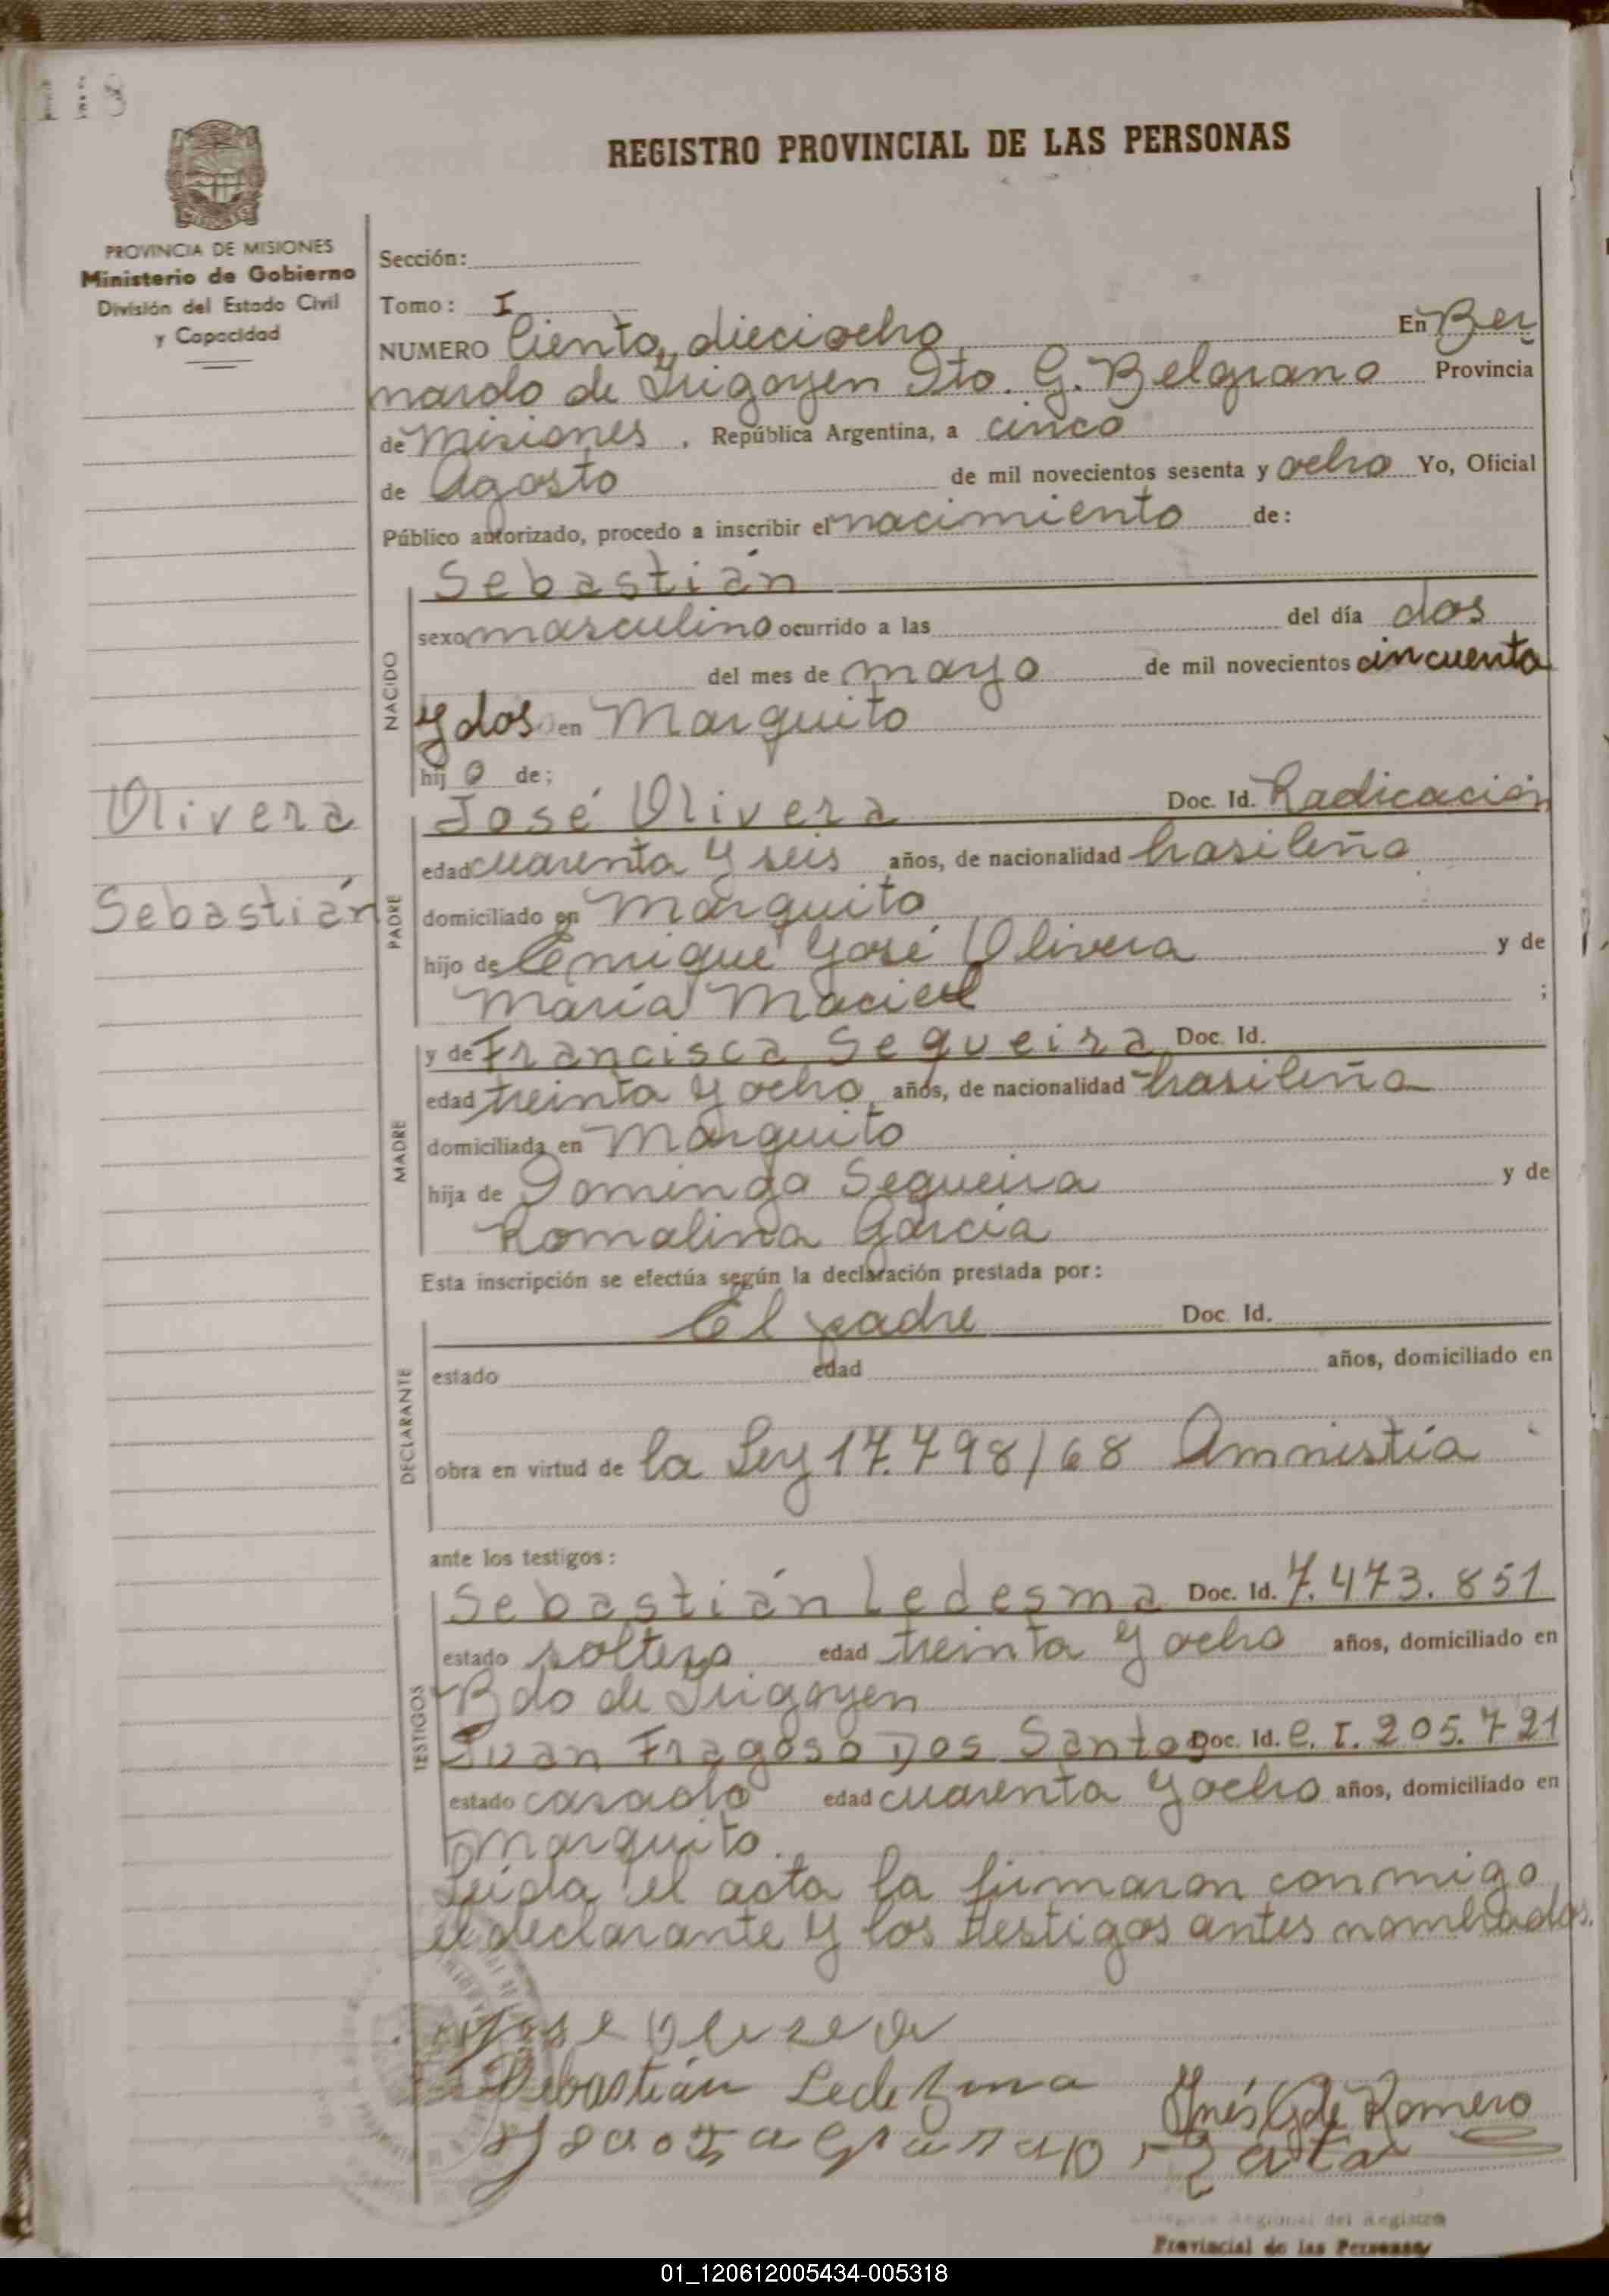 118
REGISTRO PROVINCIAL DE LAS PERSONAS
PROVINCIA DE MISIONES
Ministerio de Gobierno
División del Estado Civil
y Capacidad
Sección:
Tomo: I
NUMERO Ciento dieciocho En Ber
nardo de Irigoyen Dto. G. Belgrano Provincia
de Misiones, República Argentina, a cinco
de Agosto de mil novecientos sesenta y ocho Yo, Oficial
Público autorizado, procedo a inscribir el nacimiento de:
Sebastián
NACIDO
sexo masculino ocurrido a las del día dos
del mes de mayo de mil novecientos cincuenta
y dos en Marquito
hijo de;
Olivera
Sebastián
PADRE
José Olivera Doc. Id. Radicación
edad cuarenta y seis años, de nacionalidad brasileña
domiciliado en Marquito
hijo de Enrique José Olivera y de
María Maciel ;
MADRE
y de Francisca Sequeira Doc. Id.
edad treinta y ocho años, de nacionalidad brasileña
domiciliada en Marquito
hija de Domingo Sequeira y de
Romalina García
Esta inscripción se efectúa según la declaración prestada por:
DECLARANTE
El padre Doc. Id.
estado edad años, domiciliado en
obra en virtud de la Ley 17.798/68 Amnistía
ante los testigos:
TESTIGOS
Sebastián Ledesma Doc. Id. 7.473.851
estado soltero edad treinta y ocho años, domiciliado en
Bdo de Irigoyen
Juan Fragoso Dos Santos Doc. Id. C. I. 205.721
estado casado edad cuarenta y ocho años, domiciliado en
Marquito.
Leída el acta la firmaron conmigo
el declarante y los testigos antes nombrados.
Jose
Sebastián Ledezma
Inés G de Romero
Regional del Registro
Provincial de las Personas
01_120612005434-005318